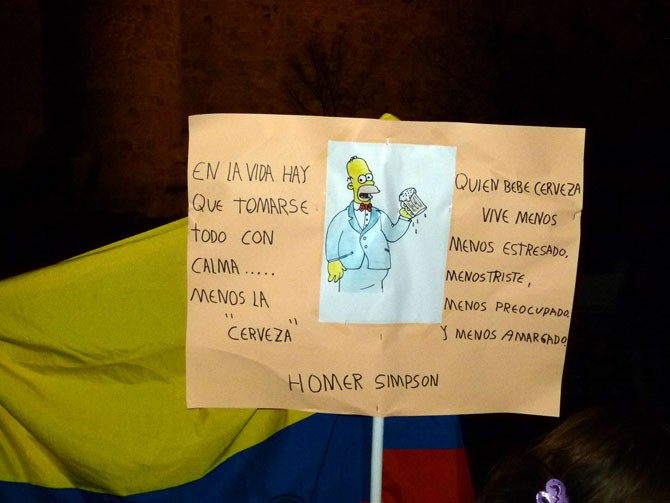 EN LA VIDA HAY
QUE TOMARSE
TODO CON
CALMA.....
MENOS LA
"CERVEZA"
QUIEN BEBE CERVEZA
VIVE MENOS
MENOS ESTRESADO.
MENOS TRISTE,
MENOS PREOCUPADO.
Y MENOS AMARGADO.
HOMER SIMPSON